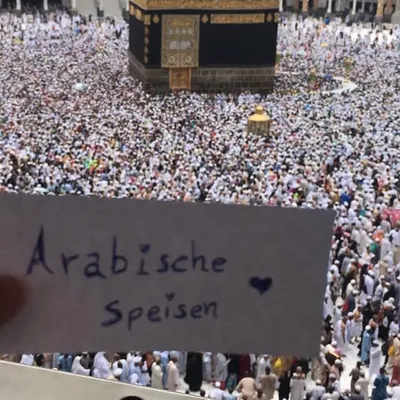 Arabische
speisen